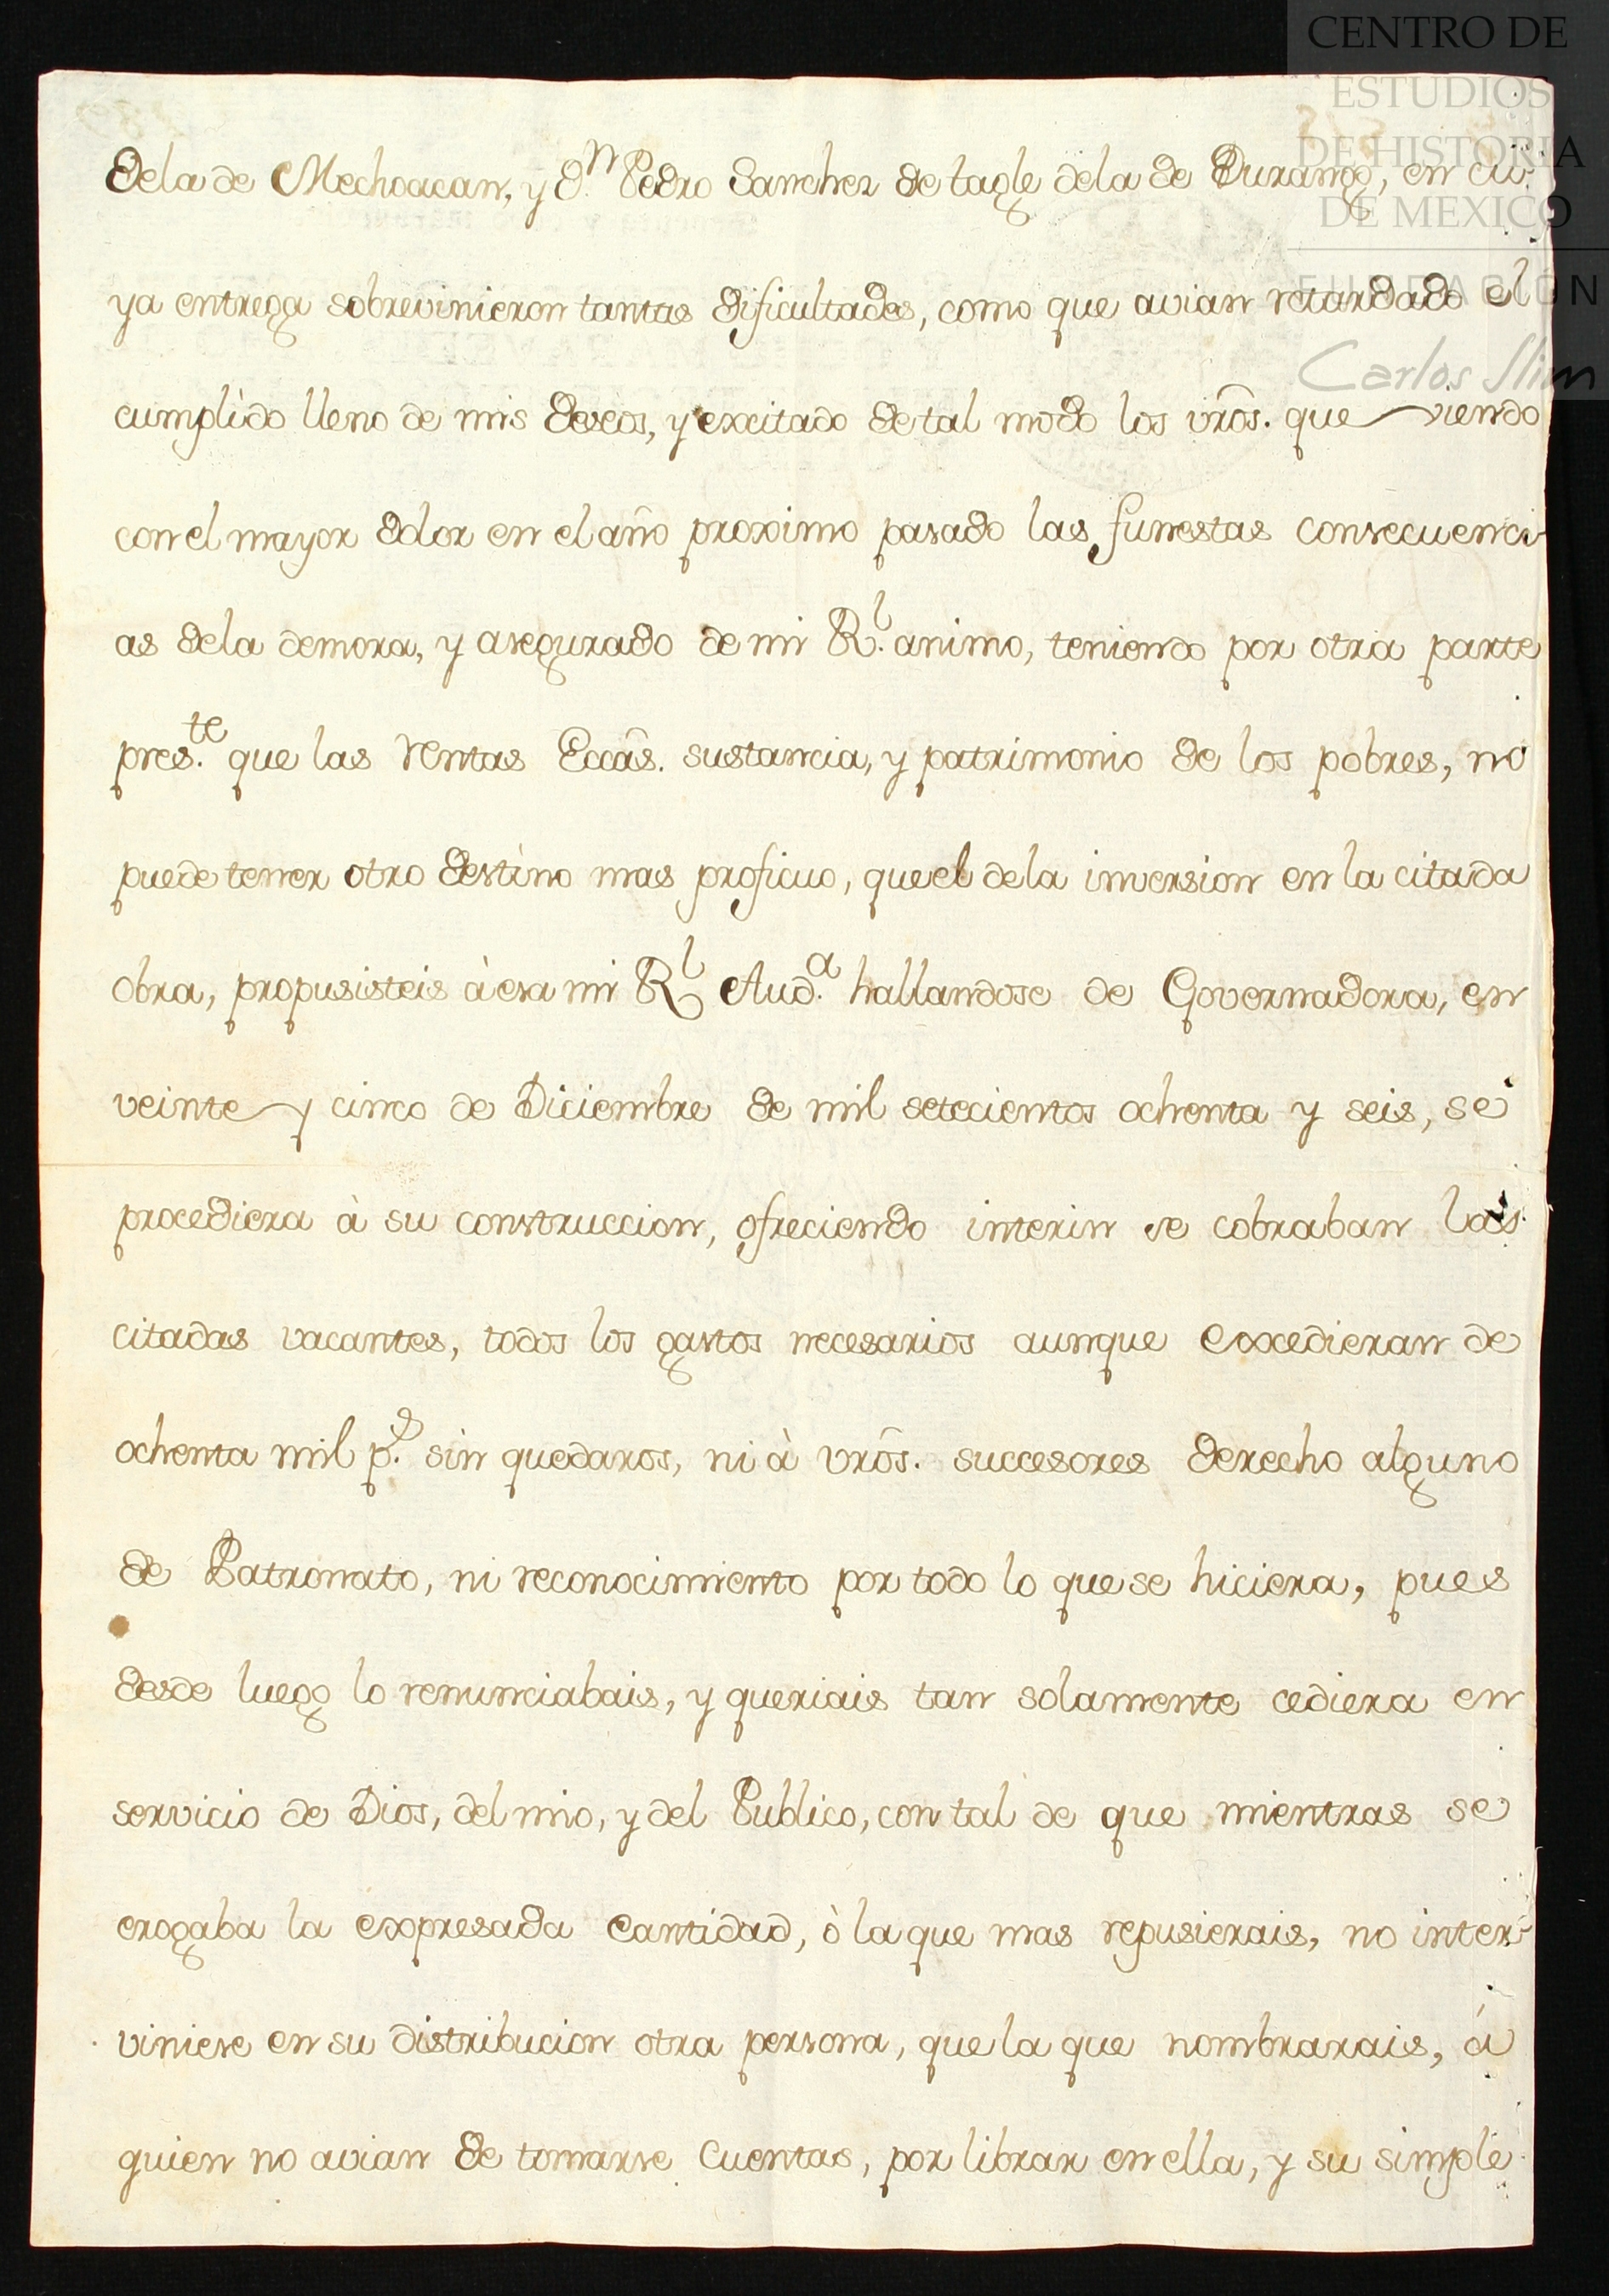 CENTRO DE
ESTUDIOS
DE HISTORIA
DE MEXICO
FUNDACIÓN
Carlos Slim
Dela de Mechoacan, y Dⁿ. Pedro Sanchez de tagle dela de Durango, en cu-
ya entrega sobrevinieron tantas dificultades, como que avian retardado el
cumplido lleno de mis deseos, y excitado de tal modo los vrõs. que viendo
con el mayor dolor en el año proximo pasado las funestas consecuenci-
as dela demora, y asegurado de mi Rˡ. animo, teniendo por otra parte
pres.ᵗᵉ que las rentas Eccãs. sustancia, y patrimonio de los pobres, no
puede tener otro destino mas proficuo, que el dela inversion en la citada
obra, propusisteis à esa mi Rˡ Aud.ᵃ hallandose de Governadora, en
veinte y cinco de Diciembre de mil setecientos ochenta y seis, se
procediera à su construccion, ofreciendo interin se cobraban las
citadas vacantes, todos los gastos necesarios aunque excedieran de
ochenta mil p.ˢ sin quedaros, ni à vrõs. succesores derecho alguno
de Patronato, ni reconocimiento por todo lo que se hiciera, pues
desde luego lo renunciabais, y queriais tan solamente cediera en
servicio de Dios, del mio, y del Publico, con tal de que mientras se
erogaba la expresada cantidad, ò la que mas repusierais, no inter-
viniese en su distribucion otra persona, que la que nombrarais, á
quien no avian de tomarse cuentas, por librar en ella, y su simple